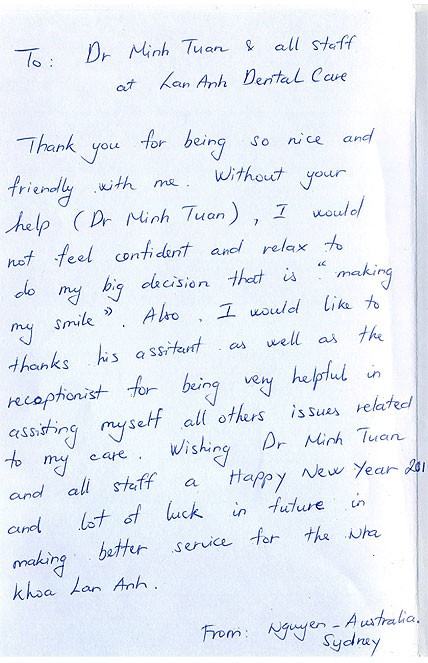 To: Dr Minh Tuan & all staff
at Lan Anh Dental Care
Thank you for being so nice and
friendly with me. Without your
help (Dr Minh Tuan), I would
not feel confident and relax to
do my big decision that is "making
my smile". Also, I would like to
thanks his assitant as well as the
receptionist for being very helpful in
assisting myself all others issues related
to my care. Wishing Dr Minh Tuan
and all staff a Happy New Year 201
and lot of luck in future in
making better service for the Nha
khoa Lan Anh.
From: Nguyen - Australia.
Sydney